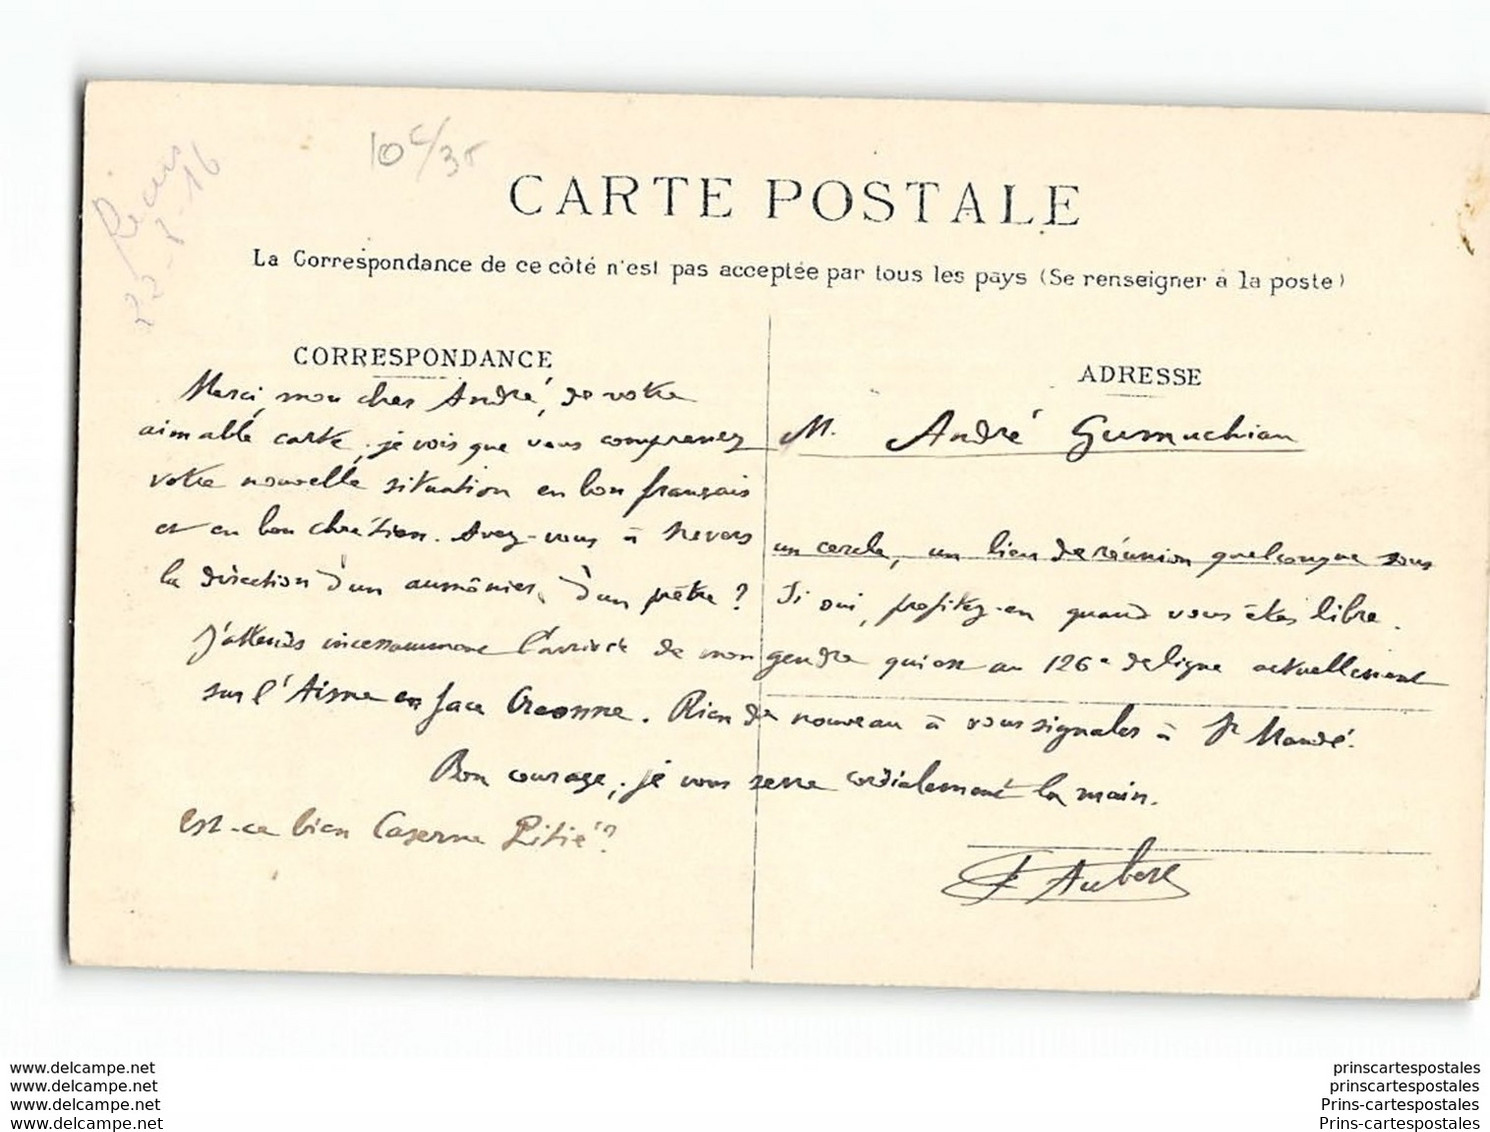 10 c/35
Reçu
22-8-16
CARTE POSTALE
La Correspondance de ce côté n'est pas acceptée par tous les pays (Se renseigner à la poste)
CORRESPONDANCE
ADRESSE
M. André Gumuchian
Merci, mon cher André, de votre
aimable carte, je vois que vous comprenez
votre nouvelle situation en bon français
et en bon chrétien. Avez-vous à Nevers
un cercle, un lieu de réunion quelconque sous
la direction d'un aumônier, d'un prêtre ? Si oui, profitez-en quand vous êtes libre.
J'attends incessamment l'arrivée de mon gendre qui est au 126e de ligne actuellement
sur l'Aisne en face Craonne. Rien de nouveau à vous signaler à St Mandé.
Bon courage, je vous serre cordialement la main.
Est-ce bien Caserne Pitié ?
F Aubert
www.delcampe.net
www.delcampe.net
www.delcampe.net
www.delcampe.net
prinscartespostales
prinscartespostales
Prins-cartespostales
Prins-cartespostales